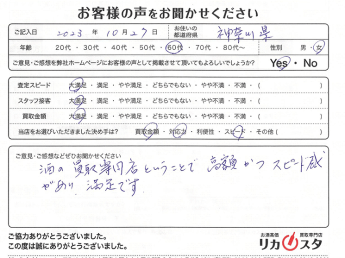 お客様の声をお聞かせください
ご記入日 2023年10月27日 お住いの都道府県 神奈川県
年齢 20代・30代・40代・50代・60代・70代・80代～ 性別 男・女
ご意見・ご感想を弊社ホームページにお客様の声として掲載させて頂いてもよろしいでしょうか? Yes・No
査定スピード 大満足・満足・やや満足・どちらでもない・やや不満・不満・( )
スタッフ接客 大満足・満足・やや満足・どちらでもない・やや不満・不満・( )
買取金額 大満足・満足・やや満足・どちらでもない・やや不満・不満・( )
当店をお選びいただきました決め手は? 買取金額・対応力・利便性・スピード・その他( )
ご意見・ご感想などぜひお聞かせください
酒の買取専門店ということで高額かつスピード感
があり、満足です。
ご協力ありがとうございました。
この度は誠にありがとうございました。
お酒高価買取専門店
リカスタ